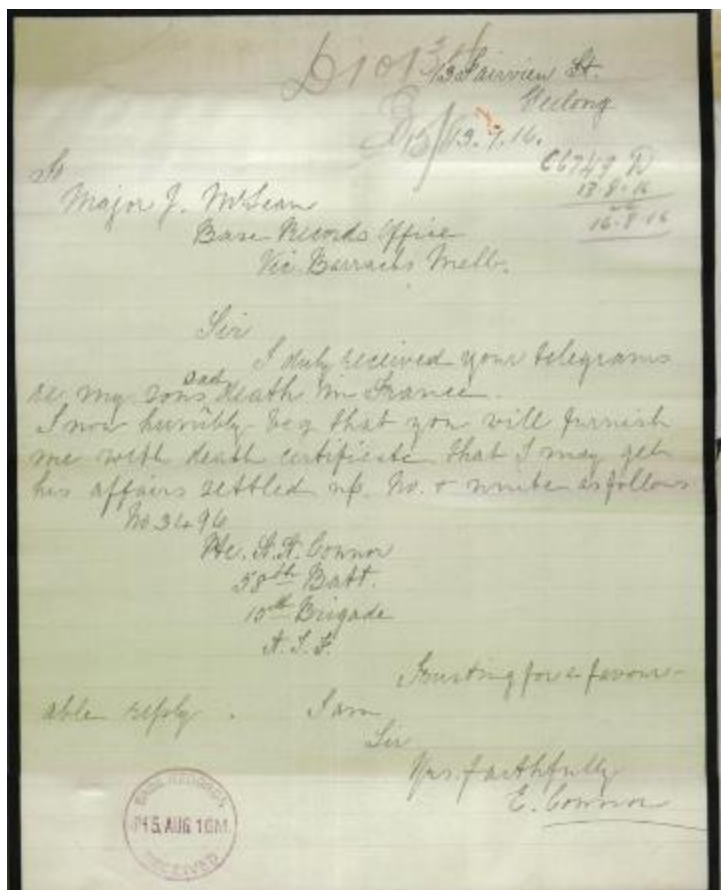 13 Fairview St.
Geelong
13.7.16.
C6749
13-8-16
16-8-16
To
Major J. McLean
Base Records Office
Vic Barracks Melb.
Sir
I duly received your telegrams
re my sons sad death in France.
I now humbly beg that you will furnish
me with death certificate that I may get
his affairs settled up. No. & as follows
No 3496
Pte. Connor
58th Batt.
15th Brigade
A.I.F.
Trusting for a favour-
able reply. I am
Sir
Yrs faithfully
E. Connor
BASE RECORDS
15 AUG 16
RECEIVED